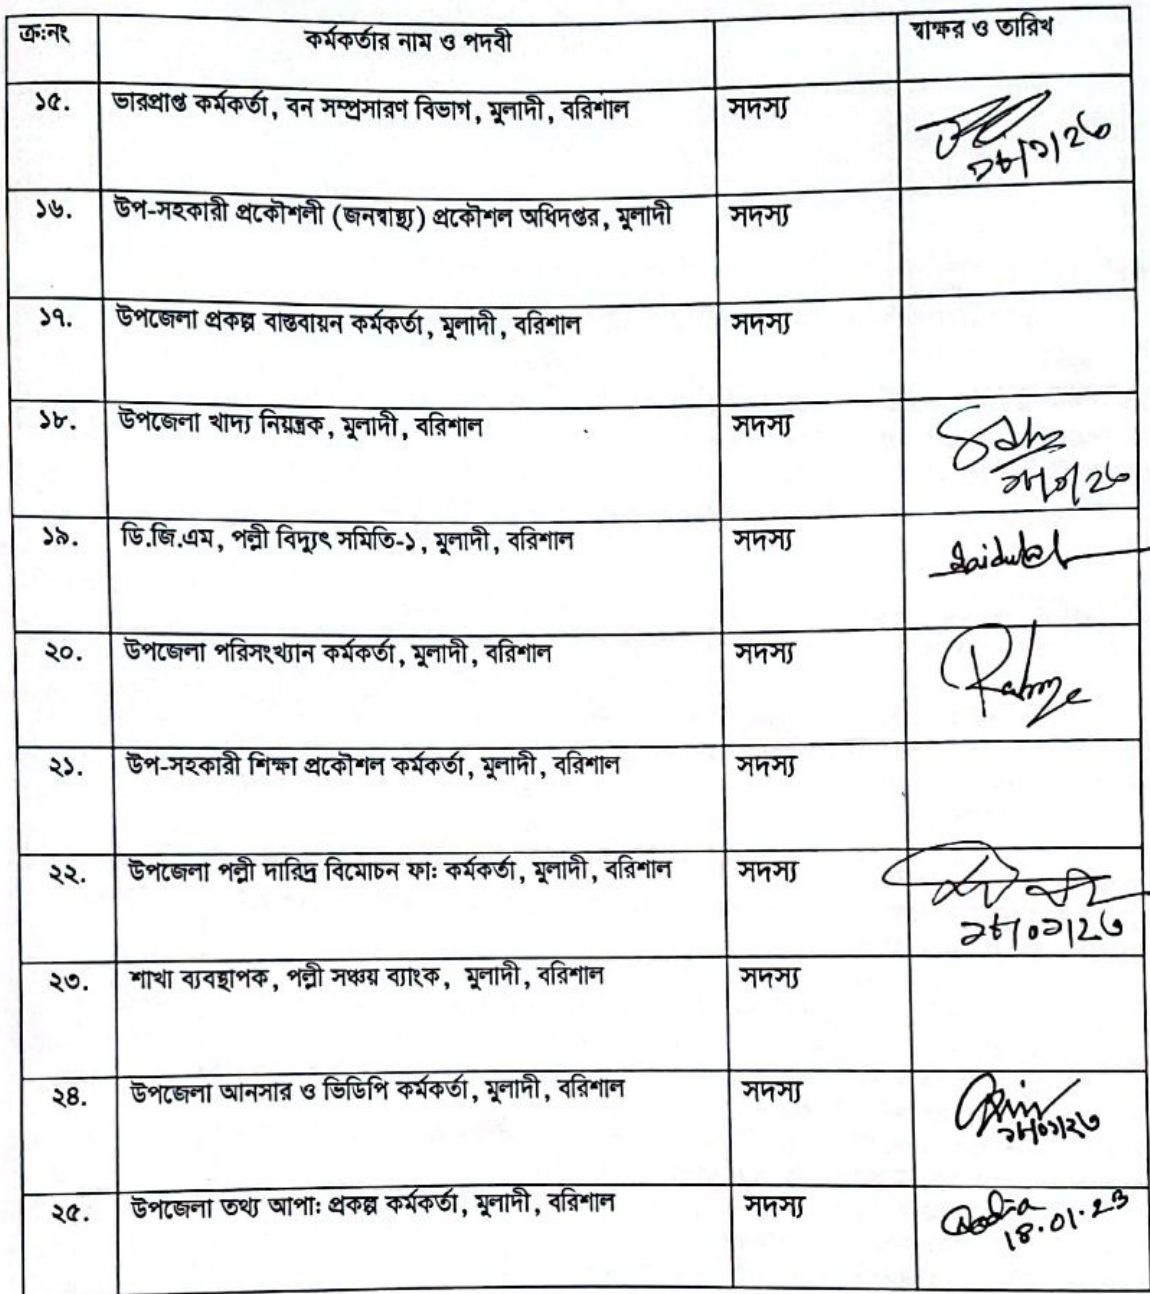 ক্র:নং কর্মকর্তার নাম ও পদবী স্বাক্ষর ও তারিখ
১৫. ভারপ্রাপ্ত কর্মকর্তা, বন সম্প্রসারণ বিভাগ, মুলাদী, বরিশাল সদস্য
১৬. উপ-সহকারী প্রকৌশলী (জনস্বাস্থ্য) প্রকৌশল অধিদপ্তর, মুলাদী সদস্য
১৭. উপজেলা প্রকল্প বাস্তবায়ন কর্মকর্তা, মুলাদী, বরিশাল সদস্য
১৮. উপজেলা খাদ্য নিয়ন্ত্রক, মুলাদী, বরিশাল সদস্য
১৯. ডি.জি.এম, পল্লী বিদ্যুৎ সমিতি-১, মুলাদী, বরিশাল সদস্য
২০. উপজেলা পরিসংখ্যান কর্মকর্তা, মুলাদী, বরিশাল সদস্য
২১. উপ-সহকারী শিক্ষা প্রকৌশল কর্মকর্তা, মুলাদী, বরিশাল সদস্য
২২. উপজেলা পল্লী দারিদ্র বিমোচন ফাঃ কর্মকর্তা, মুলাদী, বরিশাল সদস্য
১৮/০১/২৩
২৩. শাখা ব্যবস্থাপক, পল্লী সঞ্চয় ব্যাংক, মুলাদী, বরিশাল সদস্য
২৪. উপজেলা আনসার ও ভিডিপি কর্মকর্তা, মুলাদী, বরিশাল সদস্য
১৮/০১/২৩
২৫. উপজেলা তথ্য আপাঃ প্রকল্প কর্মকর্তা, মুলাদী, বরিশাল সদস্য
18.01.23